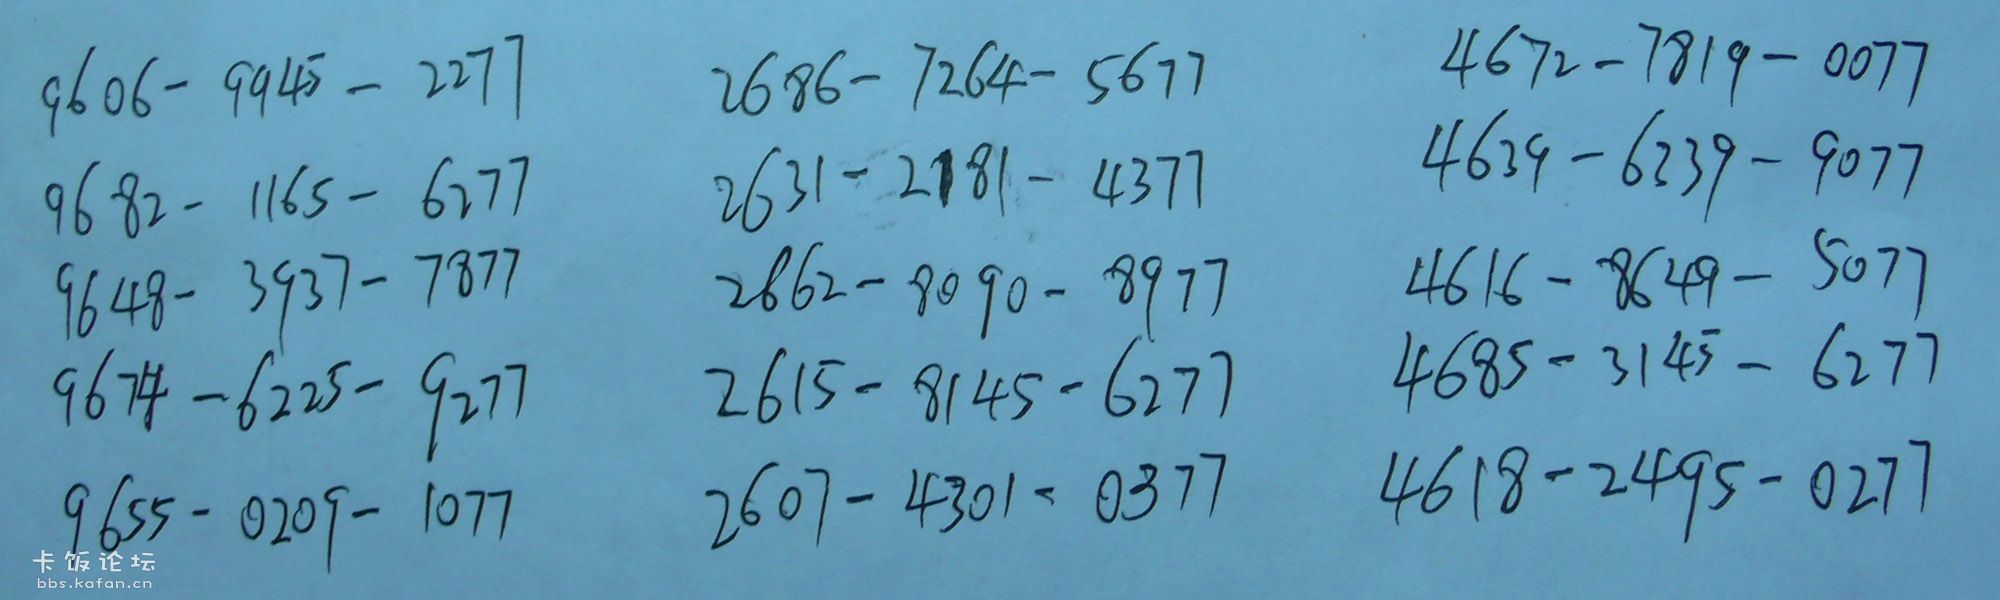 9606-9945-2277 2686-7264-5677 4672-7819-0077
9682-1165-6277 2631-2181-4377 4639-6239-9077
9648-3937-7877 2662-8090-8977 4616-8649-5077
9674-6225-9277 2615-8145-6277 4685-3145-6277
9655-0209-1077 2607-4301-0377 4618-2495-0277
卡饭论坛
bbs.kafan.cn